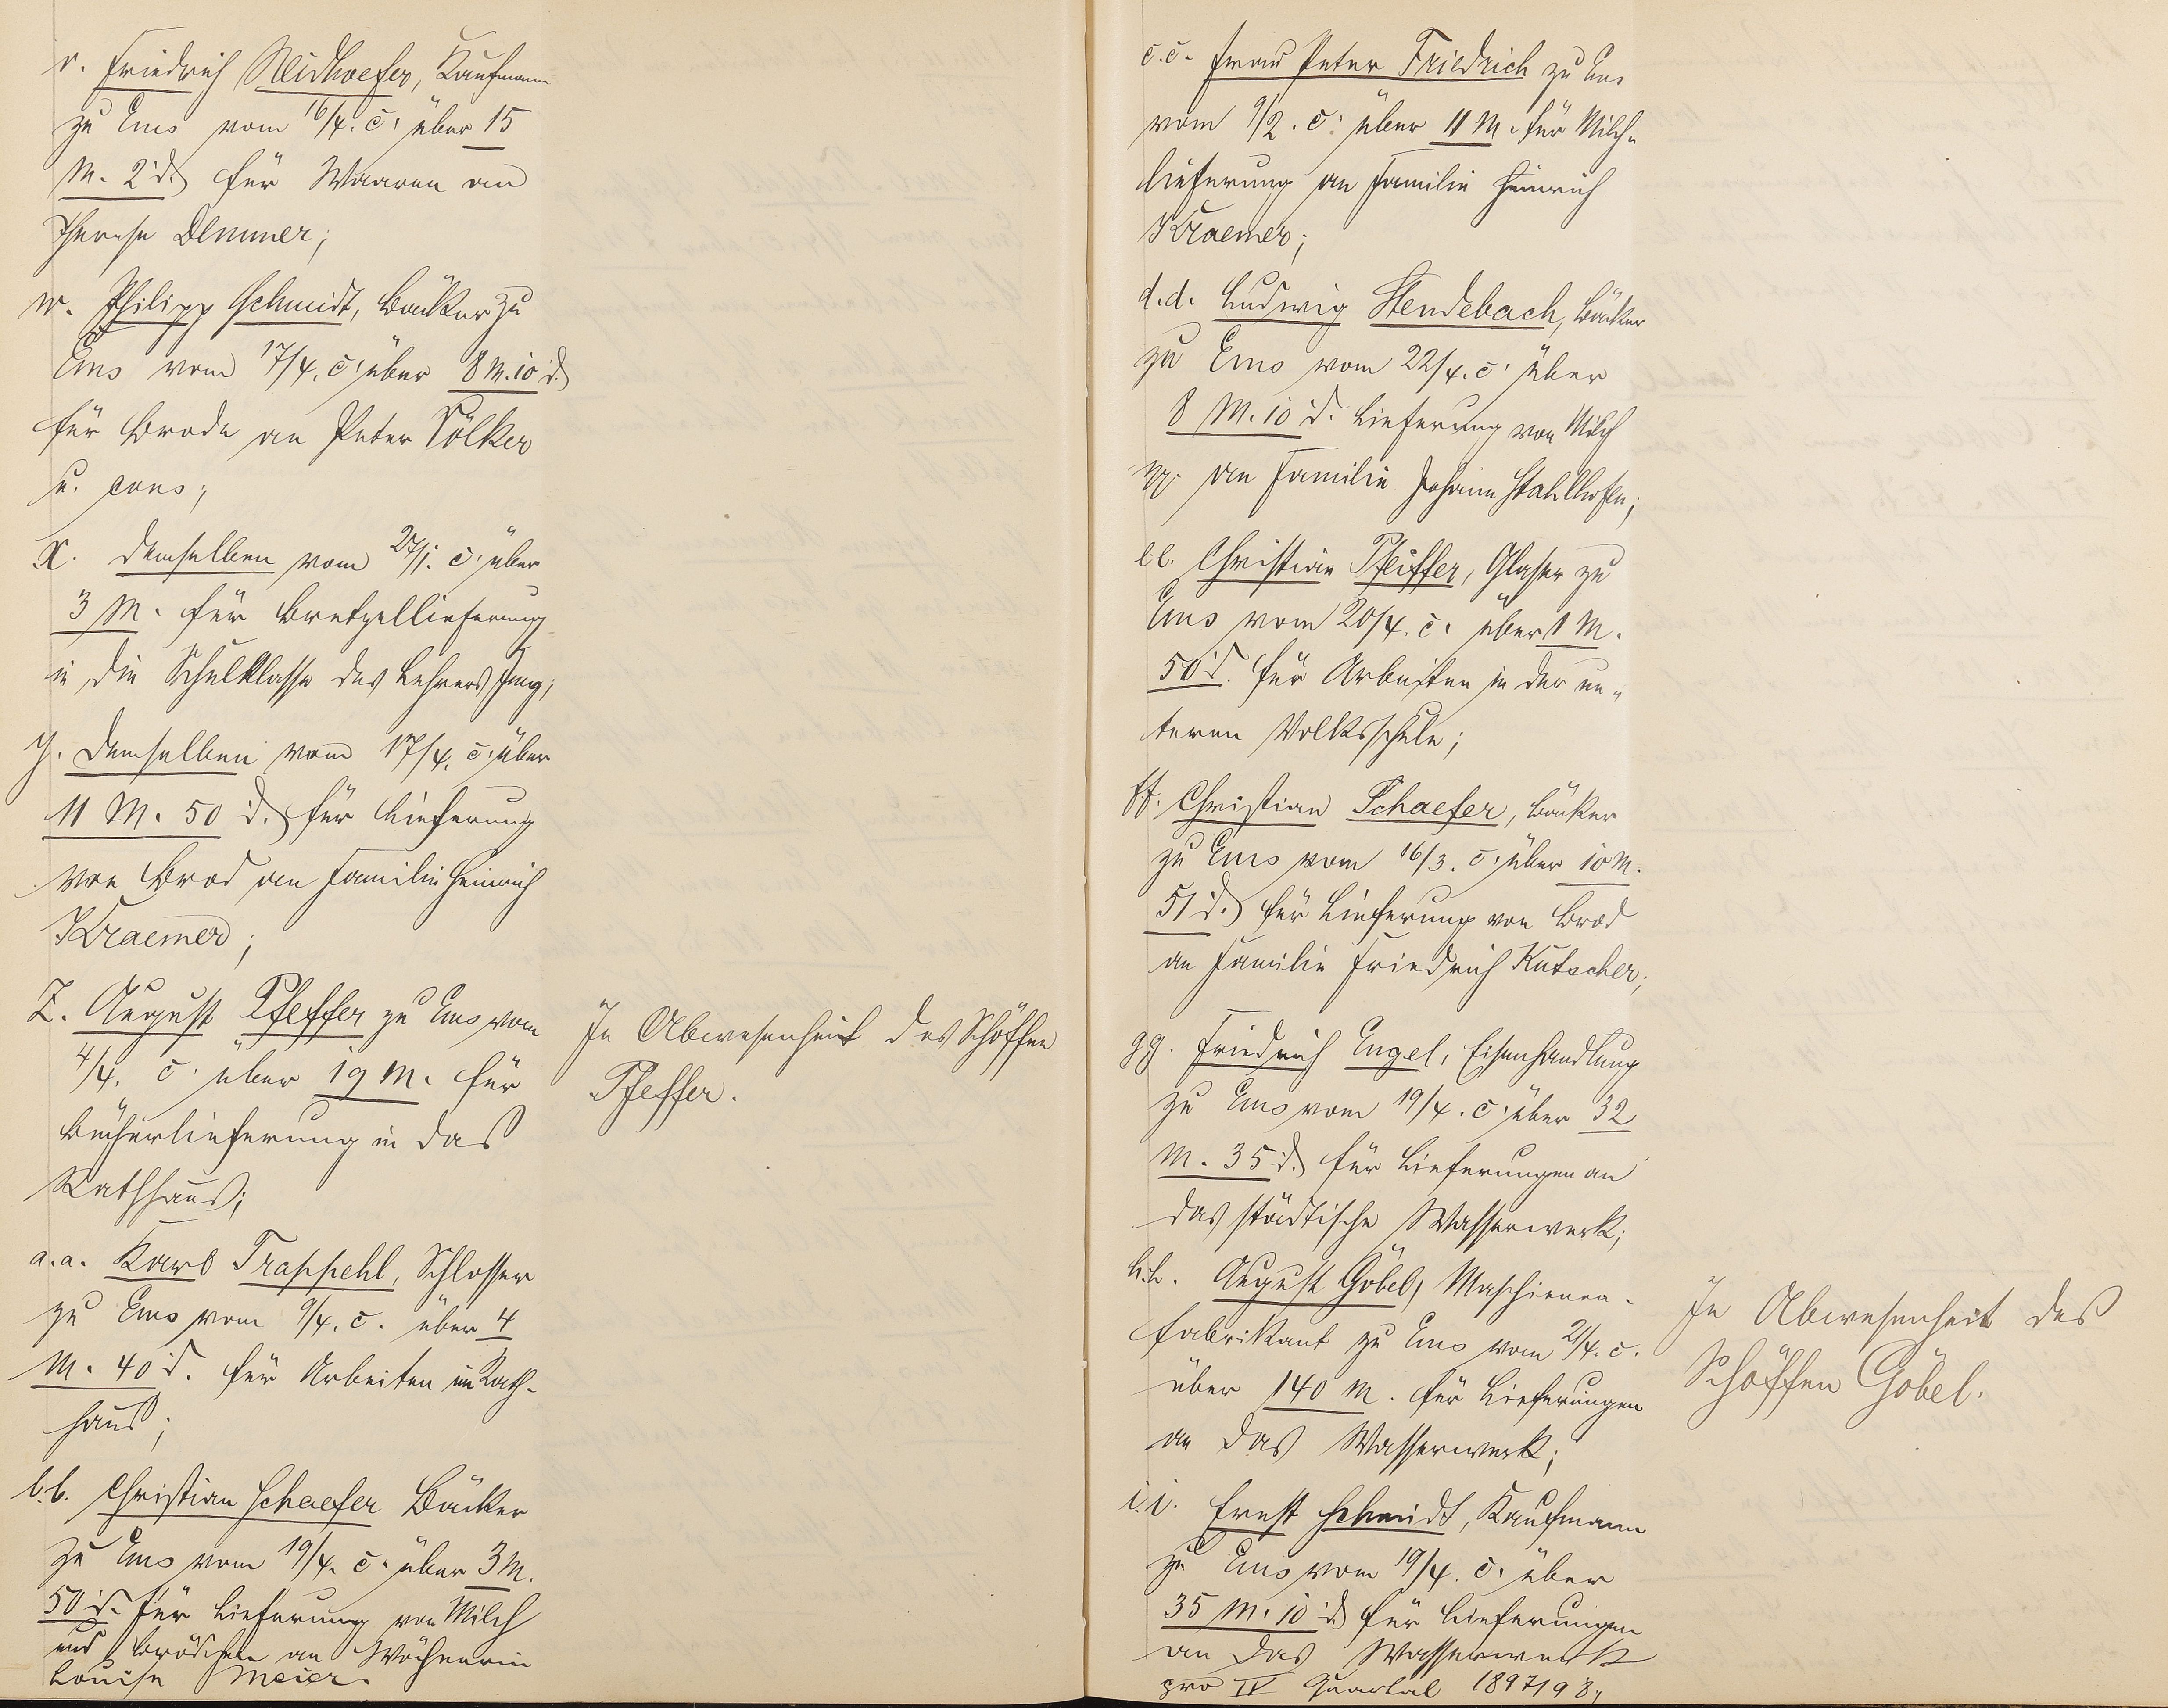 v. Friedrich Neidhoefer, Kaufmann
zu Ems vom 16/4. c. über 15
M. 2 d. für Waaren an
Therese Demmer;
w. Philipp Schmidt, Bäcker zu
Ems vom 17/4. c. über 8 M. 10 d.
für Brode an Peter Völker
u. cons;
x. demselben vom 27/1. c. über
3 M. für Bretzellieferung
in die Schulklasse des Lehrers Jung;
y. demselben vom 17/4. c. über
11 M. 50 d. für Lieferung
von Brod an Familie Heinrich
Kraemer;
z. August Pfeffer zu Ems vom
4/4. c. über 19 M. für
Bücherlieferung in das
Rathhaus;
a.a. Karl Trappehl, Schlosser
zu Ems vom 9/4. c. über 4
M. 40 d. für Arbeiten im Rath-
haus;
b.b. Christian Schaefer Bäcker
zu Ems vom 19/4. c. über 3 M.
50 d. für Lieferung von Milch
und Brödchen an Wöchnerin
Louise Meier.
In Abwesenheit des Schöffen
Pfeffer.
c.c. Frau Peter Friedrich zu Ems
vom 9/2. c. über 11 M. für Milch-
lieferung an Familie Heinrich
Kraemer;
d.d. Ludwig Stendebach, Bäcker
zu Ems vom 22/4. c. über
8 M. 10 d. Lieferung von Milch
pp. an Familie Johann Stahlhofen;
ee. Christian Pfeiffer, Glaser zu
Ems vom 20/4. c. über 1 M.
50 d. für Arbeiten in der un-
teren Volksschule;
ff. Christian Schaefer, Bäcker
zu Ems vom 16/3. c. über 10 M.
51 d. für Lieferung von Brod
an Familie Friedrich Kutscher;
gg. Friedrich Engel, Eisenhandlung
zu Ems vom 19/4. c. über 32
M. 35 d. für Lieferungen an
das städtische Wasserwerk;
h.h. August Göbel, Maschienen-
fabrikant zu Ems vom 21/4. c.
über 140 M. für Lieferungen
an das Wasserwerk;
i.i. Ernst Schmidt, Kaufmann
zu Ems vom 19/4. c. über
35 M. 10 d. für Lieferungen
an das Wasserwerk
pro IV Quartal 1897/98;
In Abwesenheit des
Schöffen Göbel.